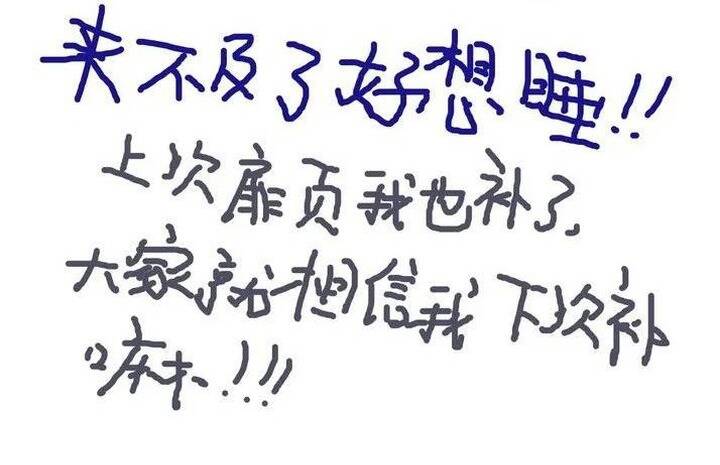 来不及了好想睡!!
上次扉页我也补了,
大家就相信我下次补
嘛!!!